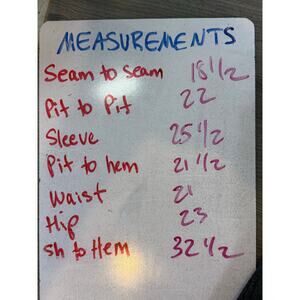 MEASUREMENTS
Seam to seam 18 1/2
Pit to Pit 22
Sleeve 25 1/2
Pit to hem 21 1/2
Waist 21
Hip 23
Sh to Hem 32 1/2